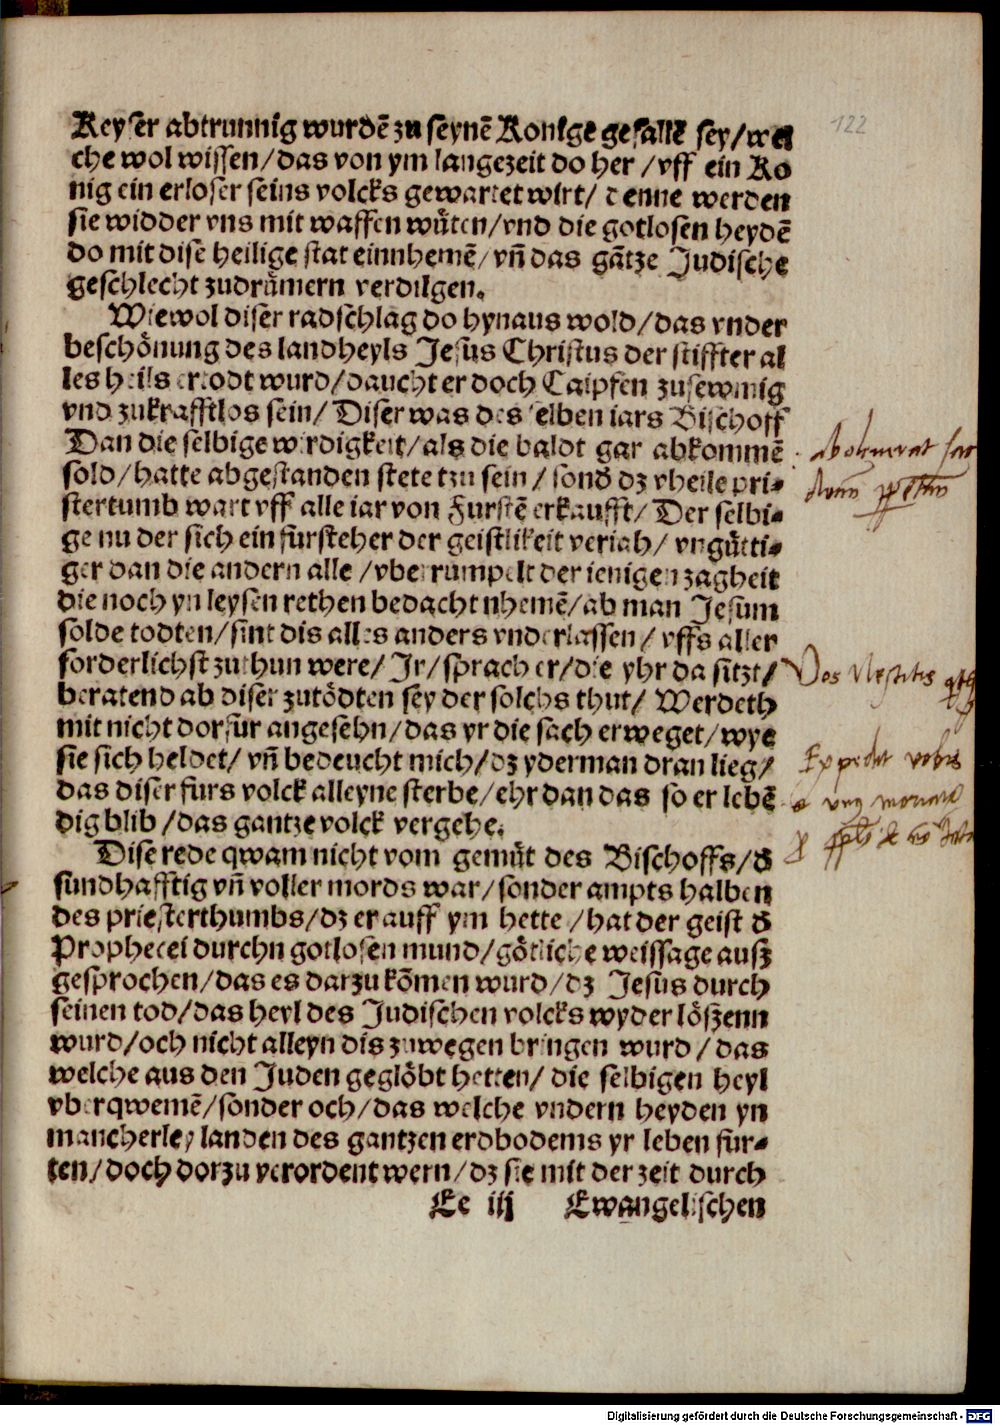 122
Keyser abtrunnig wurdē zu seynē Konige gefallē sey/wel
che wol wissen/das von ym langezeit do her/vff ein Ko
nig ein erloser seins volcks gewartet wirt/denne werden
sie widder vns mit waffen wüten/vnd die gotlosen heydē
do mit dise heilige stat einnhemē/vn̄ das gātze Judische
geschlecht zudrümern verdilgen.
Wiewol diser radschlag do hynaus wold/das vnder
beschönung des landheyls Jesus Christus der stiffter al
les heils ertodt wurd/daucht er doch Caipfen zusewmig
vnd zukrafftlos sein/Diser was des selben iars Bischoff
Dan die selbige wirdigkeit/als die baldt gar abkommē
sold/hatte abgestanden stete tzu sein/sond dz vheile pri-
stertumb wart vff alle iar von Furstē erkaufft/Der selbi-
ge nu der sich ein fursteher der geistlikeit veriah/vngütti-
ger dan die andern alle/vberrumpelt der ienigen zagheit
die noch yn leysen rethen bedacht nhemē/ab man Jesum
solde todten/sint dis alles anders vnderlassen/vffs aller
forderlichst zuthun were/Jr/sprach er/die yhr da sitzt/
beratend ab diser zutödten sey der solchs thut/Werdeth
mit nicht dorfur angesehn/das yr die sach erweget/wye
sie sich heldet/vn̄ bedeucht mich/dz yderman dran lieg/
das diser furs volck alleyne sterbe/ehr dan das so er lebē
dig blib/das gantze volck vergehe.
Dise rede qwam nicht vom gemüt des Bischoffs/d
sundhafftig vn̄ voller mords war/sonder ampts halben
des priesterthumbs/dz er auff ym hette/hat der geist d
Prophecei durchn gotlosen mund/götliche weissage ausz
gesprochen/das es darzu kōmen wurd/dz Jesus durch
seinen tod/das heyl des Judischen volcks wyder löszenn
wurd/och nicht alleyn dis zuwegen bringen wurd/das
welche aus den Juden geglöbt hetten/die selbigen heyl
vberqwemē/sonder och/das welche vndern heyden yn
mancherley landen des gantzen erdbodems yr leben fur-
ten/doch dorzu verordent wern/dz sie mit der zeit durch
Ee iij Ewangelischen
Vos Nescitis
Expedit vobis
Digitalisierung gefördert durch die Deutsche Forschungsgemeinschaft - DFG